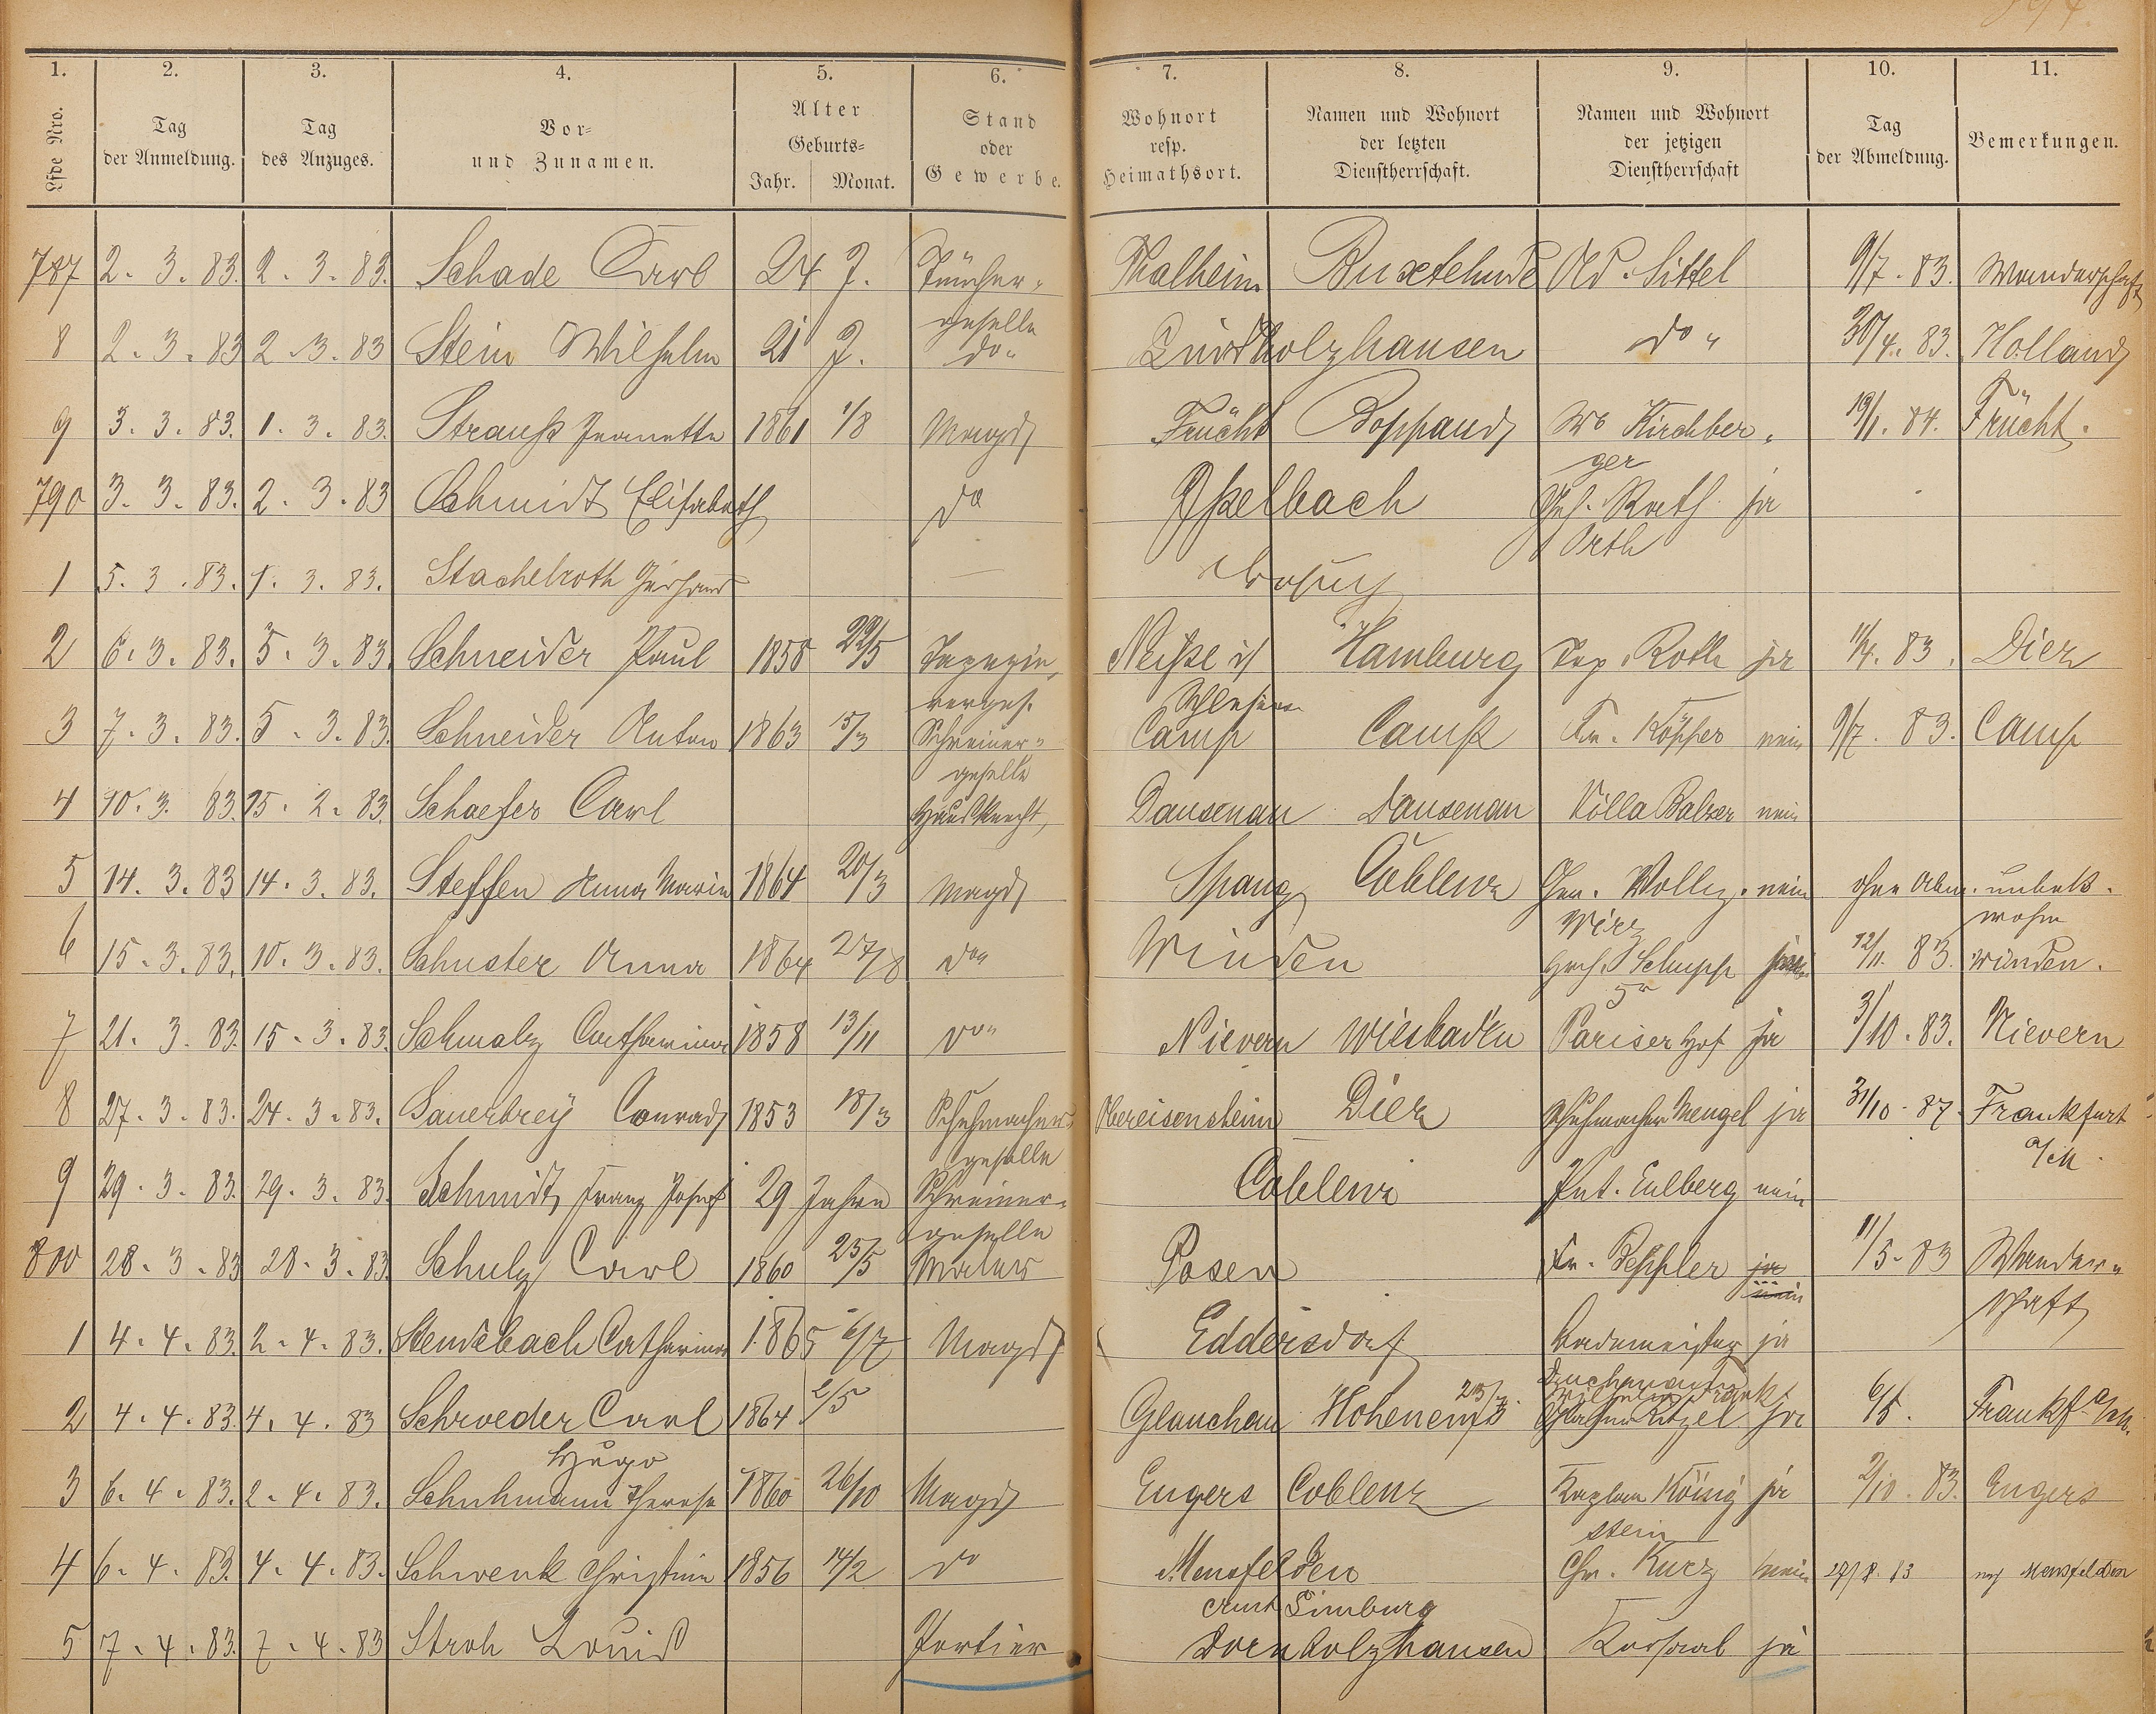 1. 2. 3. 4. 5. 6. 7. 8. 9. 10. 11.
Lfde Nro. Tag der Anmeldung. Tag des Anzuges. Vor- und Zunamen. Alter Geburts- Jahr. Monat. Stand oder Gewerbe. Wohnort resp. Heimathsort. Namen und Wohnort der letzten Dienstherrschaft. Namen und Wohnort der jetzigen Dienstherrschaft Tag der Abmeldung. Bemerkungen.
787 2. 3. 83. 2. 3. 83. Schade Carl 24 J. Tüncher- Thalheim Buxtehude Ad. Sittel 9/7. 83. Wanderschaft
geselle
8 2. 3. 83 2. 3. 83 Stein Wilhelm 21 J. do " holzhausen do " 30/4. 83. Holland
9 3. 3. 83. 1. 3. 83. Strauß Jeanette 1861 1/8 Magd Frücht Boppard Wb Kirchber- 19/1. 84. Frücht.
ger
790 3. 3. 83. 2. 3. 83 Schmidt Elisabeth do Ißelbach Geh. Rath ja
Orth
1 5. 3. 83. 1. 3. 83. Stachelroth Gerhard — Besuch
2 6. 3. 83. 5. 3. 83. Schneider Paul 1858 29/5 Tapezie- Neiße i/ Hamburg Tap. Roth ja 11/4. 83. Diez
rergeh. Schlesien
3 7. 3. 83. 5. 3. 83. Schneider Anton 1863 15/3 Schreiner- Camp Camp Fr. Köpper nein 9/7. 83. Camp
geselle
4 10. 3. 83. 15. 2. 83. Schaefer Carl Hausknecht, Dausenau Dausenau Villa Balzer nein
5 14. 3. 83 14. 3. 83. Steffen Anna Maria 1864 20/3 Magd Spang Coblenz Chr. nein ohne Abm. unbek.
wohin
6 15. 3. 83. 10. 3. 83. Schuster Anna 1864 27/8 do " Winden Hch. Schupp 12/11. 83. Winden.
7 21. 3. 83. 15. 3. 83. Schmalz Catharina 1858 13/11 do " Nievern Wiesbaden Pariser Hof ja 3/10. 83. Nievern
8 27. 3. 83. 24. 3. 83. Sauerbrey Conrad 1853 18/3 Schuhmacher- Obereisensheim Diez Schuhmacher Mengel ja 31/10. 87. Frankfurt
geselle a/M.
9 29. 3. 83. 29. 3. 83. Schmidt, Franz Josef 29 Jahre Schreiner- Coblenz Pet. Eulberg nein
geselle
800 28. 3. 83 28. 3. 83. Schulz Carl 1860 25/5 Maler Posen Fr. Beppler ja 11/5. 83 Wander-
nein schaft
1 4. 4. 83. 2. 4. 83. Stendebach Catharina 1865 6/7 Magd Eddersdorf Bademeister ja
2 4. 4. 83. 4. 4. 83 Schroeder Carl 1864 2/5 Glauchau Hohenems ja 6/5. Frankf. a/M.
Hugo
3 6. 4. 83. 2. 4. 83. Schuhmann Therese 1860 26/10 Magd Engers Coblenz Kaplan König ja 2/10. 83. Engers
stein
4 6. 4. 83. 4. 4. 83. Schwenk Christine 1856 14/2 do Mensfelden Chr. Kurz nein 27/8. 83 nach Mensfelden
Amt Limburg
5 7. 4. 83. 7. 4. 83 Stroh Louis Portier Dornholzhausen Kursaal ja